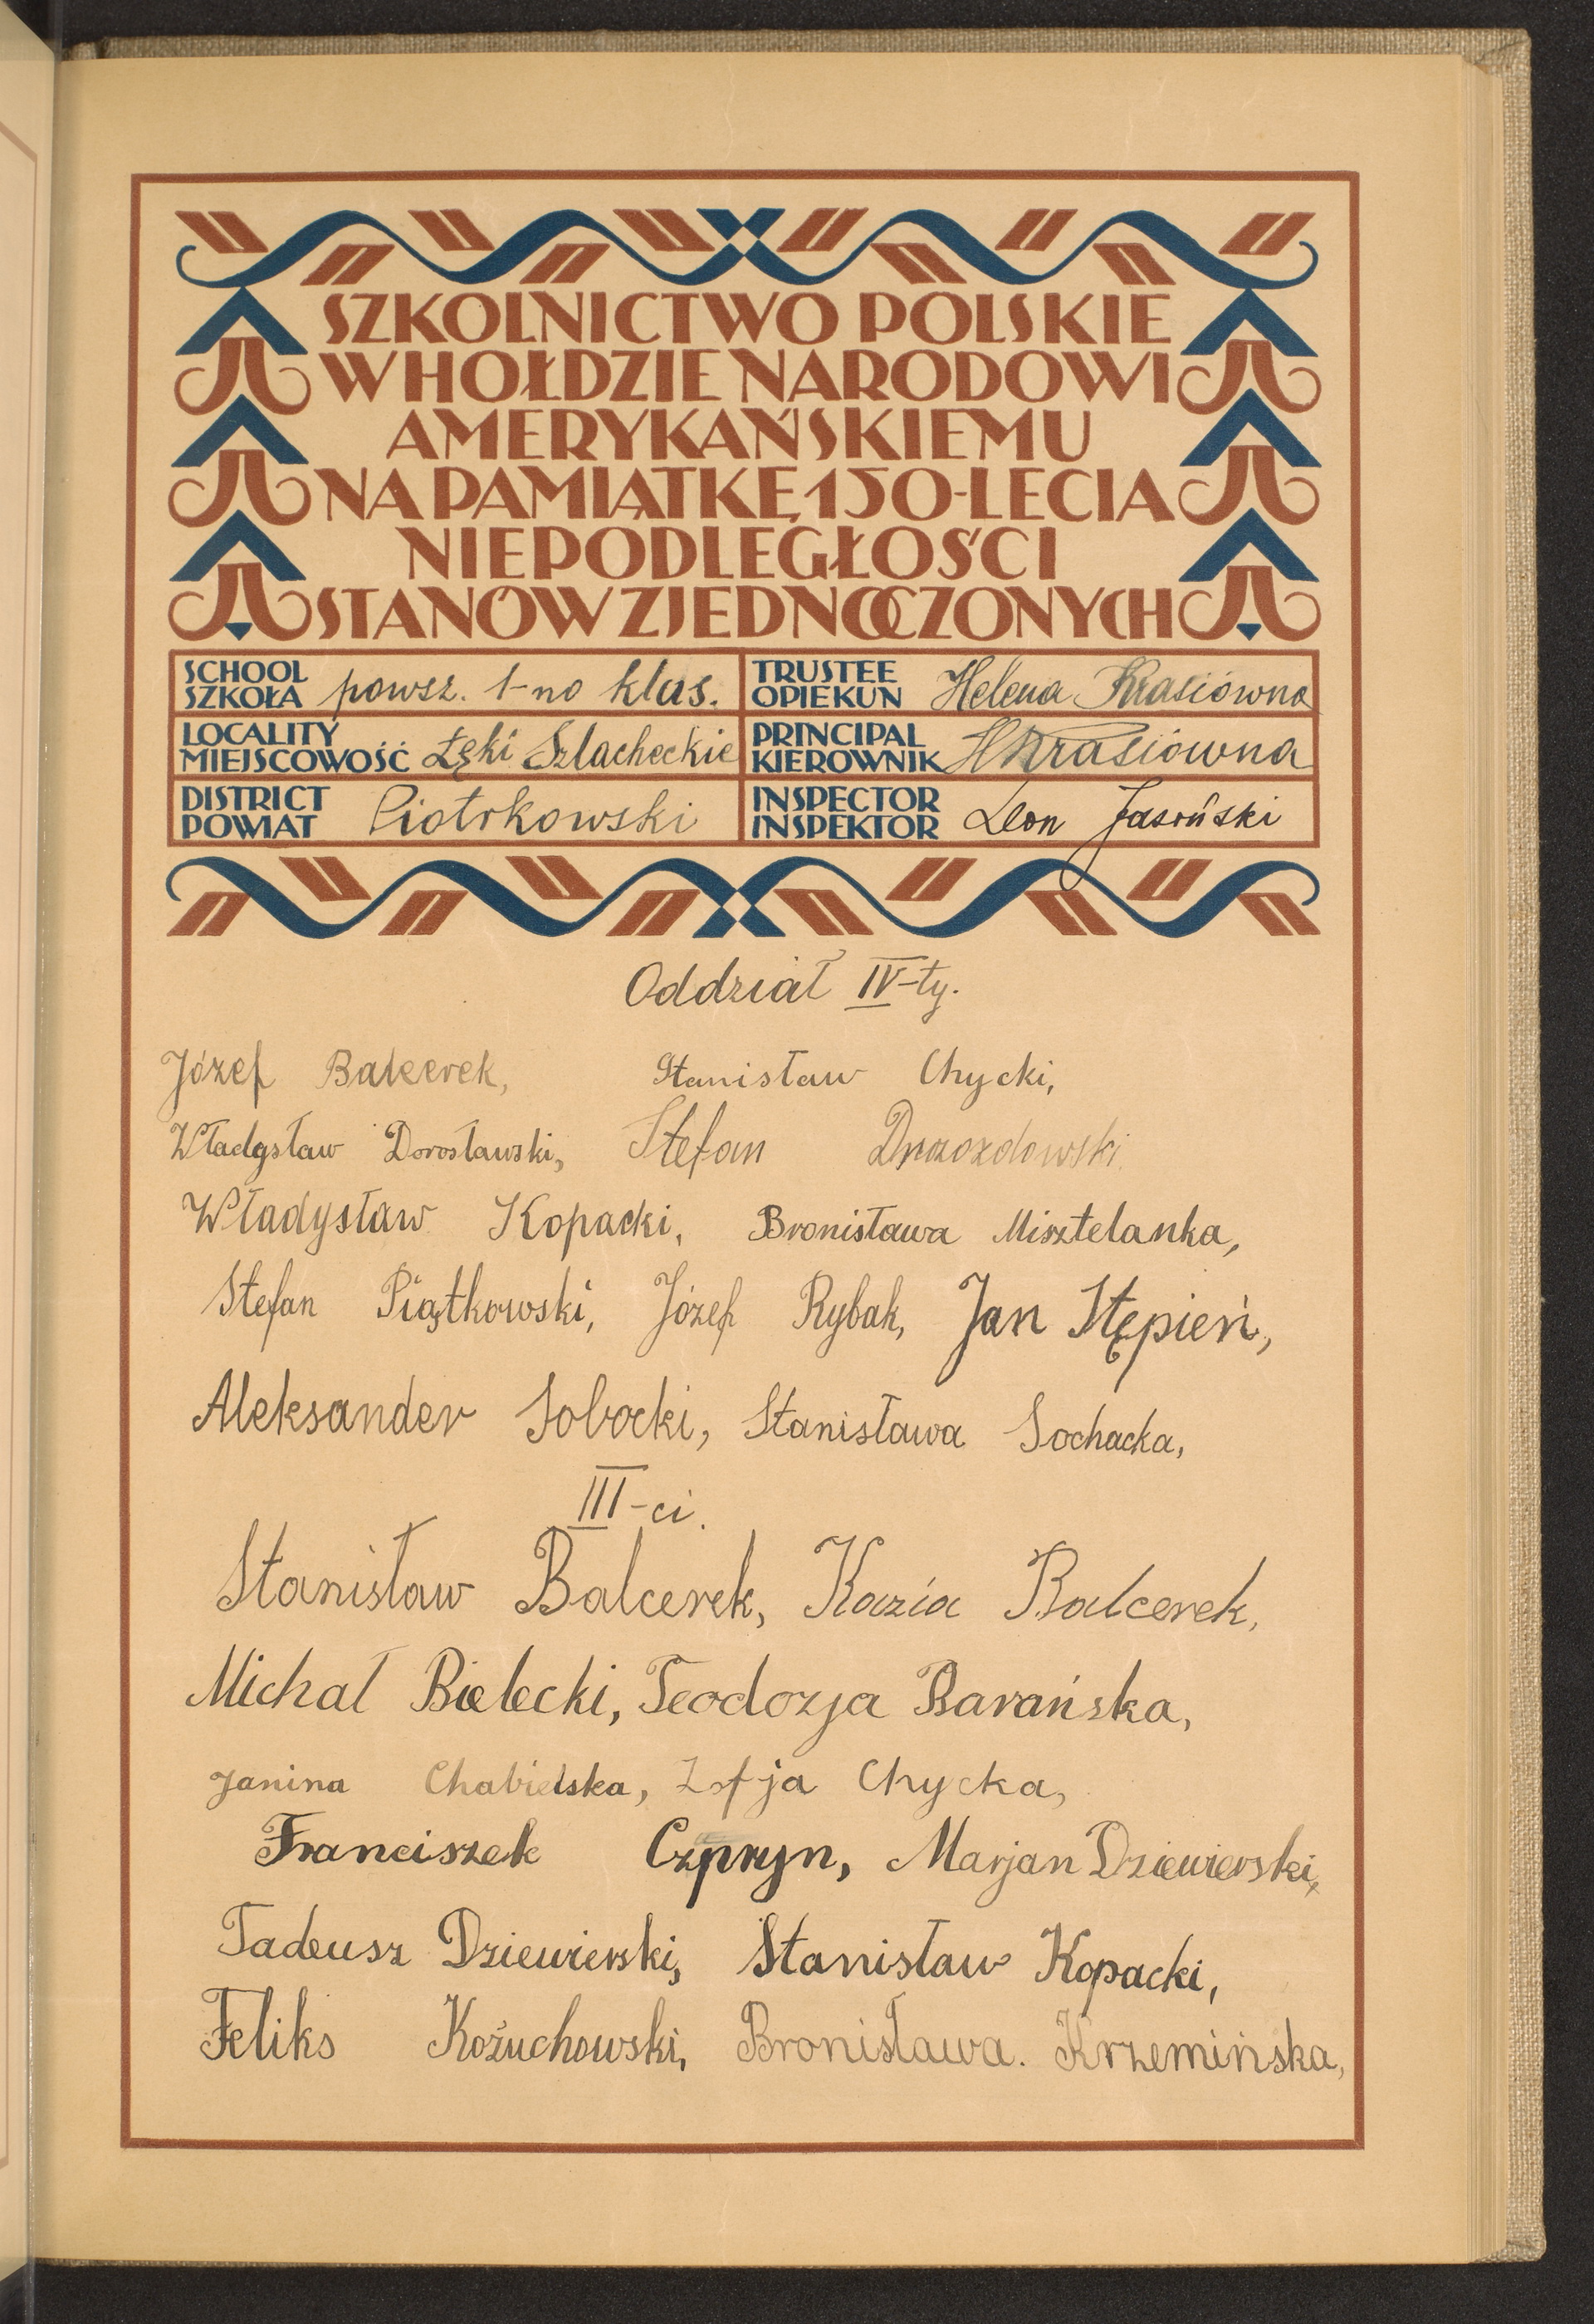 SZKOLNICTWO POLSKIE
W HOŁDZIE NARODOWI
AMERYKAŃSKIEMU
NA PAMIĄTKĘ 150-LECIA
NIEPODLEGŁOŚCI
STANÓW ZJEDNOCZONYCH
SCHOOL
SZKOŁA powsz. 1-no klas.
TRUSTEE
OPIEKUN Helena Krasiówna
LOCALITY
MIEJSCOWOŚĆ Łęki Szlacheckie
PRINCIPAL
KIEROWNIK HKrasiówna
DISTRICT
POWIAT Piotrkowski
INSPECTOR
INSPEKTOR Leon Jasoński
Oddział IV-ty.
Józef Balcerek, Stanisław Chycki,
Władysław Dorosławski, Stefan
Władysław Kopacki, Bronisława Misztelanka,
Stefan Piątkowski, Józef Rybak, Jan Stępień,
Aleksander Sobocki, Stanisława Sochacka,
III-ci.
Stanisław Balcerek, Kazia Balcerek,
Michał Bielecki, Teodozja Barańska,
Janina Chabielska, Zofja Chycka,
Franciszek Czpryn, Marjan Dziewierski,
Tadeusz Dziewierski, Stanisław Kopacki,
Feliks Kożuchowski, Bronisława. Krzemińska,